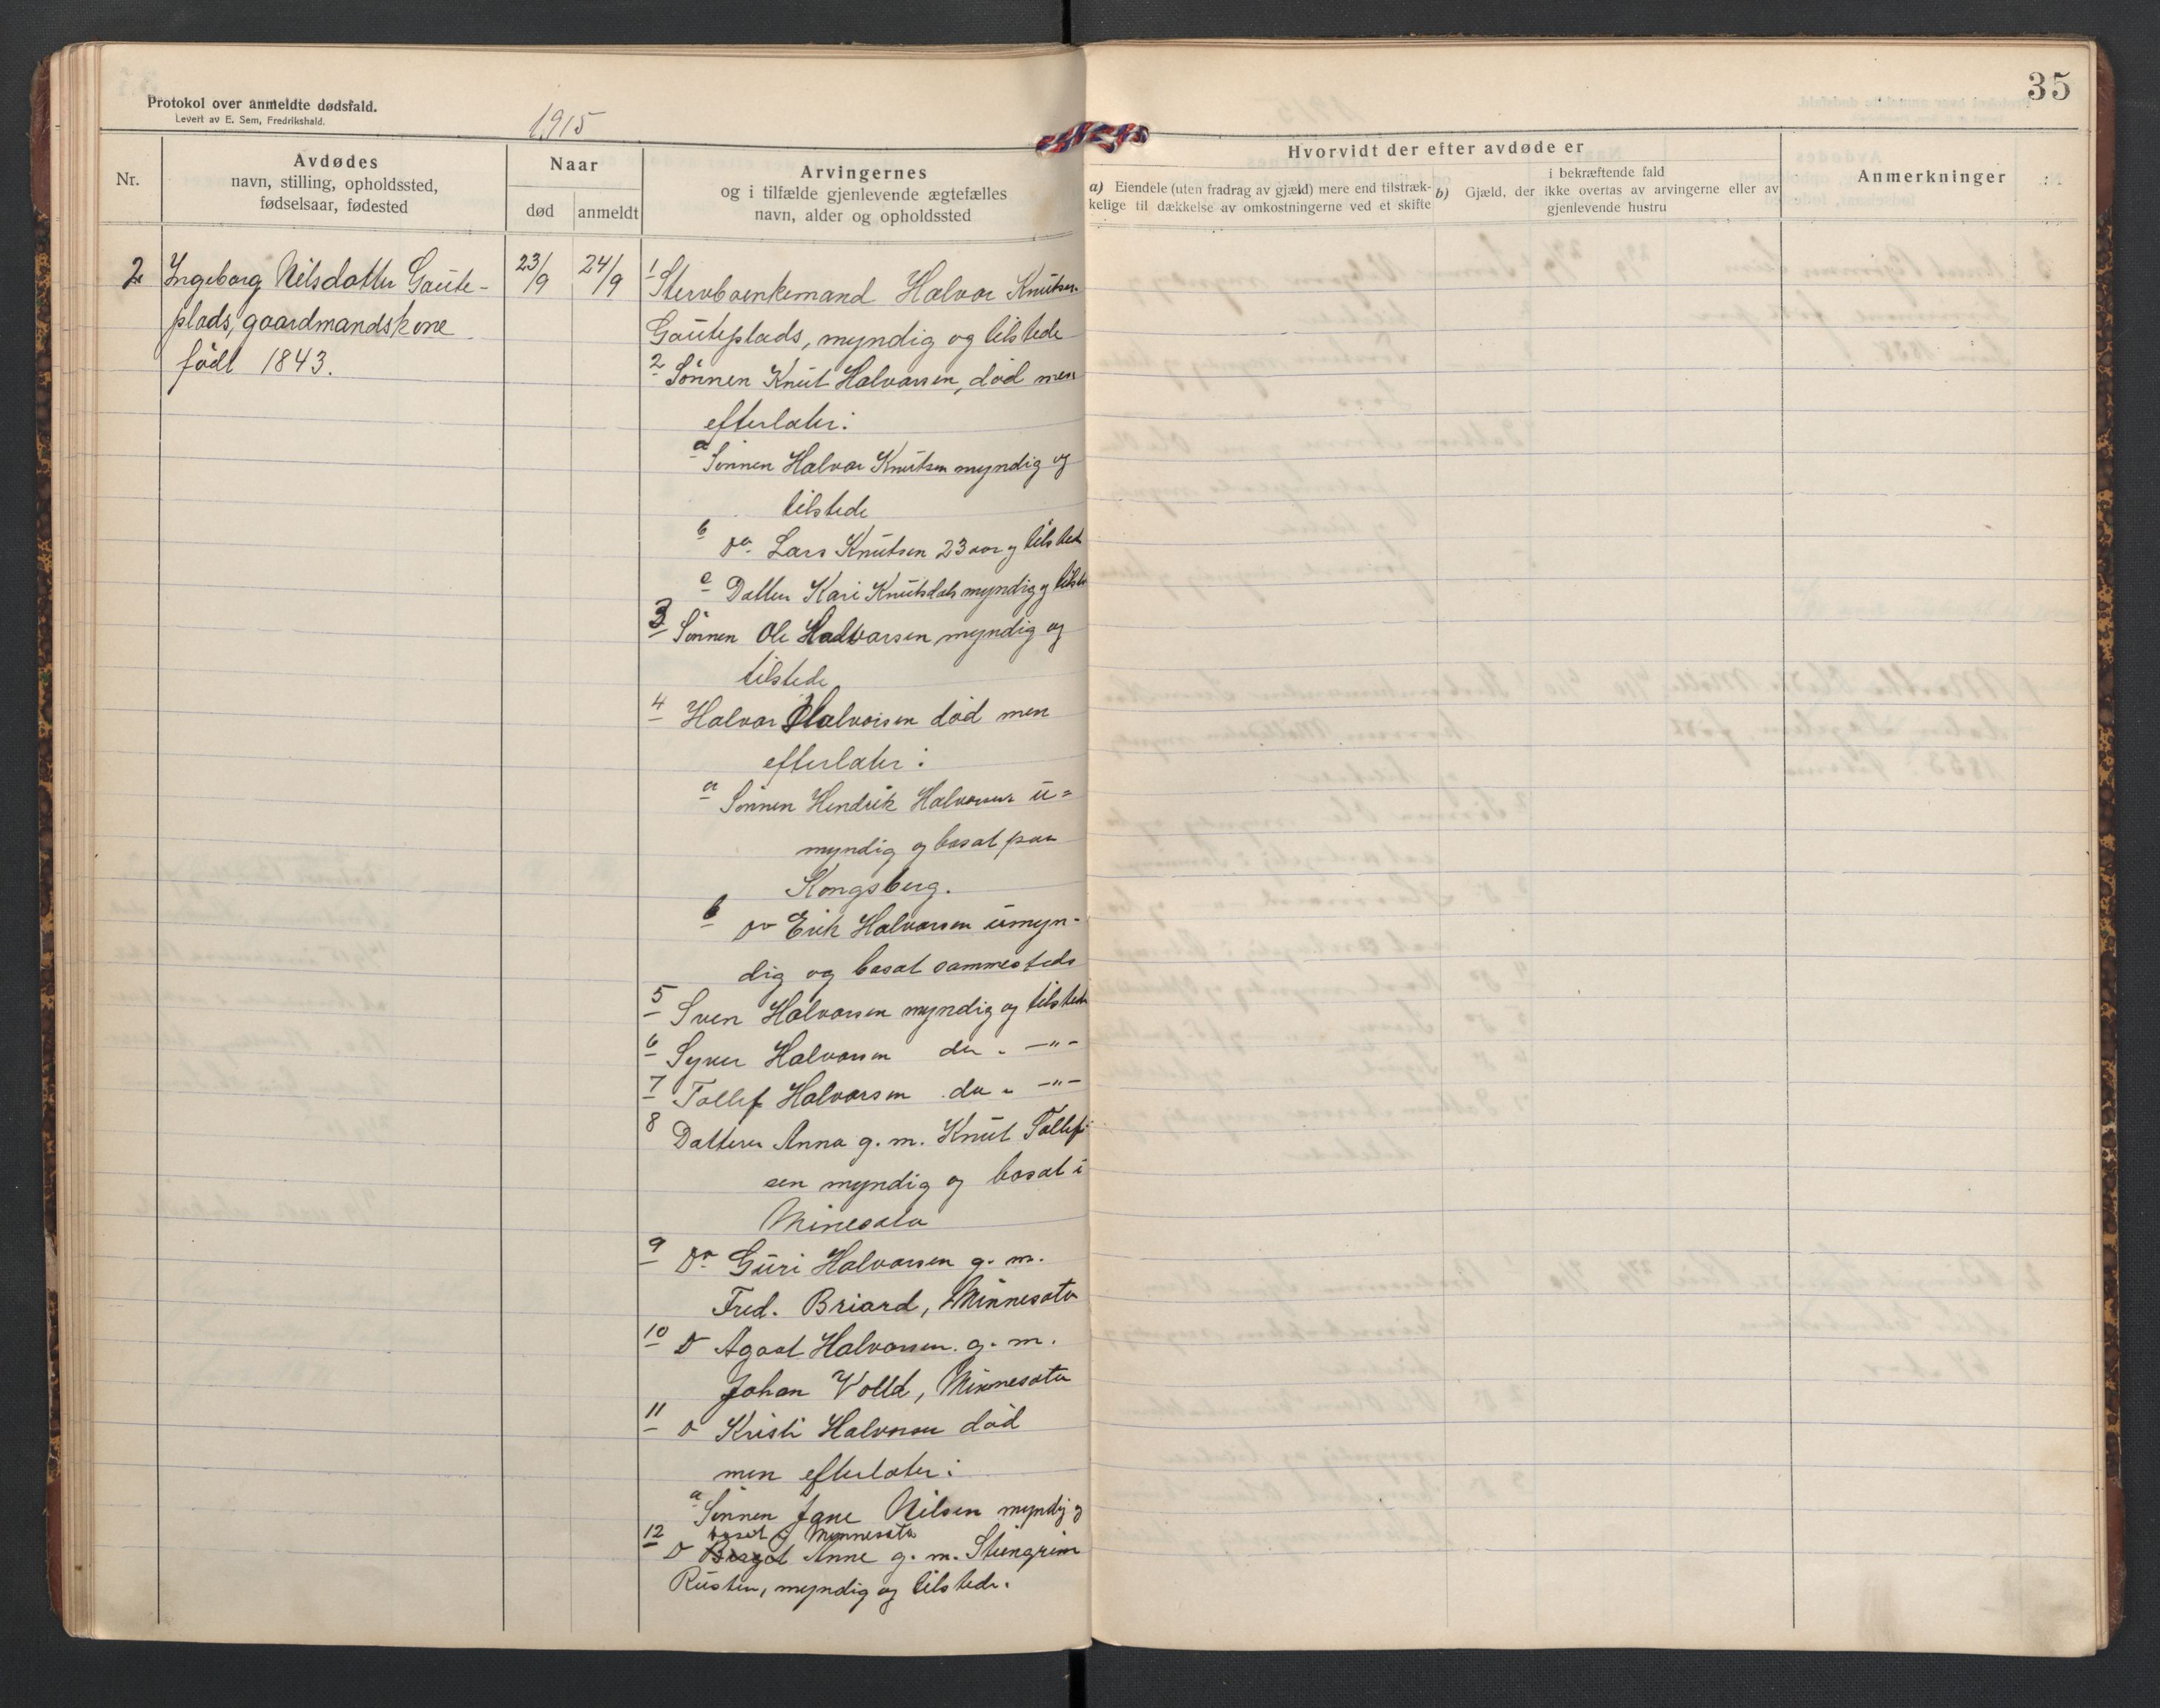 35
Protokol over anmeldte dødsfald.
Levert av E. Sem, Fredrikshald.
1915
Nr.
Avdødes
navn, stilling, opholdssted,
fødselsaar, fødested
Naar
død
anmeldt
Arvingernes
og i tilfælde gjenlevende ægtefælles
navn, alder og opholdssted
Hvorvidt der efter avdøde er
a) Eiendele (uten fradrag av gjæld) mere end tilstræk-
kelige til dækkelse av omkostningerne ved et skifte
b) Gjæld, der i bekræftende fald
ikke overtas av arvingerne eller av
gjenlevende hustru
Anmerkninger
2
Ingeborg Nilsdatter Gaute-
plads, gaardmandskone
født 1843.
23/9
24/9
1 Stervboenkemand Halvor Knutsen
Gauteplads, myndig og tilstede
2 Sønnen Knut Halvorsen, død men
efterlater:
a Sønnen Halvor Knutsen myndig og
tilstede
b Do Lars Knutsen 23 aar og tilstede
c Datter Kari Knutsdats myndig og tilste
3 Sønnen Ole Halvorsen myndig og
tilstede
4 Halvor Halvorsen død men
efterlater:
a Sønnen Hendrik Halvorsen u=
myndig og bosat paa
Kongsberg.
b Do Erik Halvorsen umyn-
dig og bosat sammesteds
5 Sven Halvorsen myndig og tilstede
6 Syver Halvorsen do - -"-
7 Tollef Halvorsen do - -"-
8 Datteren Anna g. m. Knut Tollef-
sen myndig og bosat i
Minesota
9 Do Guri Halvorsen g. m.
Fred. Briard, Minnesota
10 D Agaat Halvorsen g. m.
Johan Volld, Minnesota
11 D Kristi Halvorsen død
men efterlater:
a Sønnen Jane Nilsen myndig og
bosat i Minnesota
12 D Birgit Anne g. m. Steingrim
Rusten, myndig og tilstede.